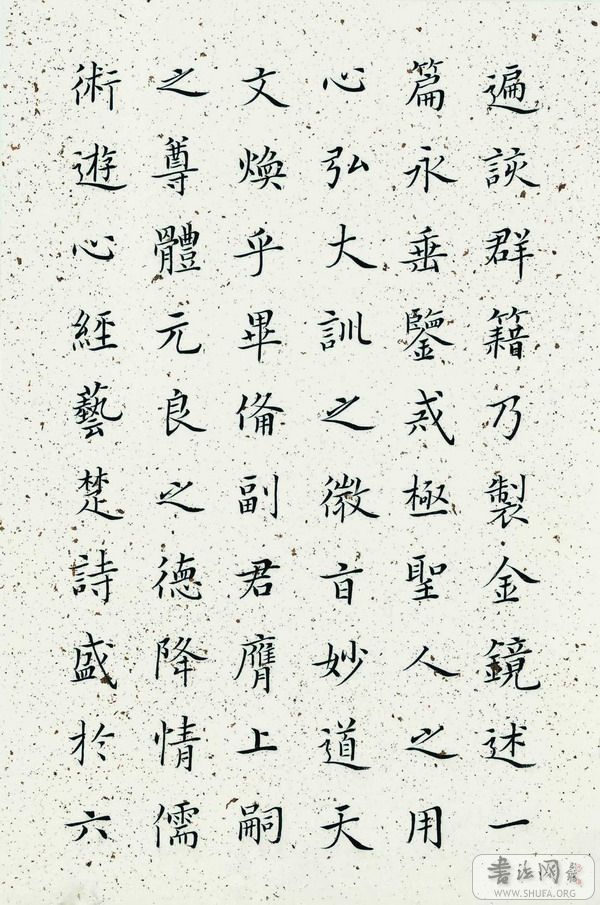 遍該群籍乃製金鏡述一
篇永垂鑒戒極聖人之用
心弘大訓之徽旨妙道天
文煥乎畢備副君膺上嗣
之尊體元良之德降情儒
術遊心經藝楚詩盛於六
書法网
WWW.SHUFA.ORG